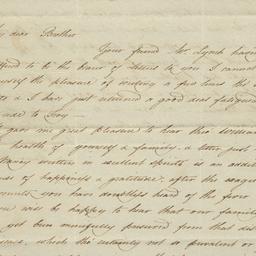 My dear Brother
Your friend Mr. Lynch having
to be the bearer of letters to you I cannot
the pleasure of writing a few lines tho
I have just returned a good deal fatigued
ride to Troy
gave me great pleasure to hear this
health of yourself & family, a letter just
written in excellent spirits is an addit
of happiness & gratitude. after the
you have doubtless heard of the fever
will be happy to hear that our family
yet been mercifully preserved from that dis
which tho certainly not so prevalent or